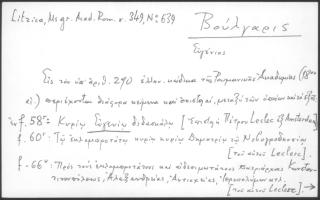 Litzica, Ms gr. Acad. Rom. σ. 349, Nο 639
Βούλγαρις
Εὐγένιος
Εἰς τὸν ὑπ' ἀρ. 290 ἑλλην. κώδικα τῆς Ρουμανικῆς Ἀκαδημίας
περιέχονται διάφορα κείμενα καὶ ἐπιστολαί, μεταξὺ τῶν ὁποίων καὶ αἱ ἑξῆς
f. 58r: Κυρίῳ Εὐγενίῳ διδασκάλῳ [Ἐπιστολὴ Πέτρου Leclerc ἐξ Amsterdam
f. 60r: Τῷ ἐλλογιμωτάτῳ κυρίῳ κυρίῳ Δημητρίῳ τῷ
[τοῦ αὐτοῦ Leclerc].
f. 66v: Πρὸς τοὺς ἐλλογιμωτάτους καὶ αἰδεσιμωτάτους Πατριάρχας Κωνσταν-
τινουπόλεως, Ἀλεξανδρείας, Ἀντιοχείας, Ἱεροσολύμων κτλ.
[τοῦ αὐτοῦ Leclerc].